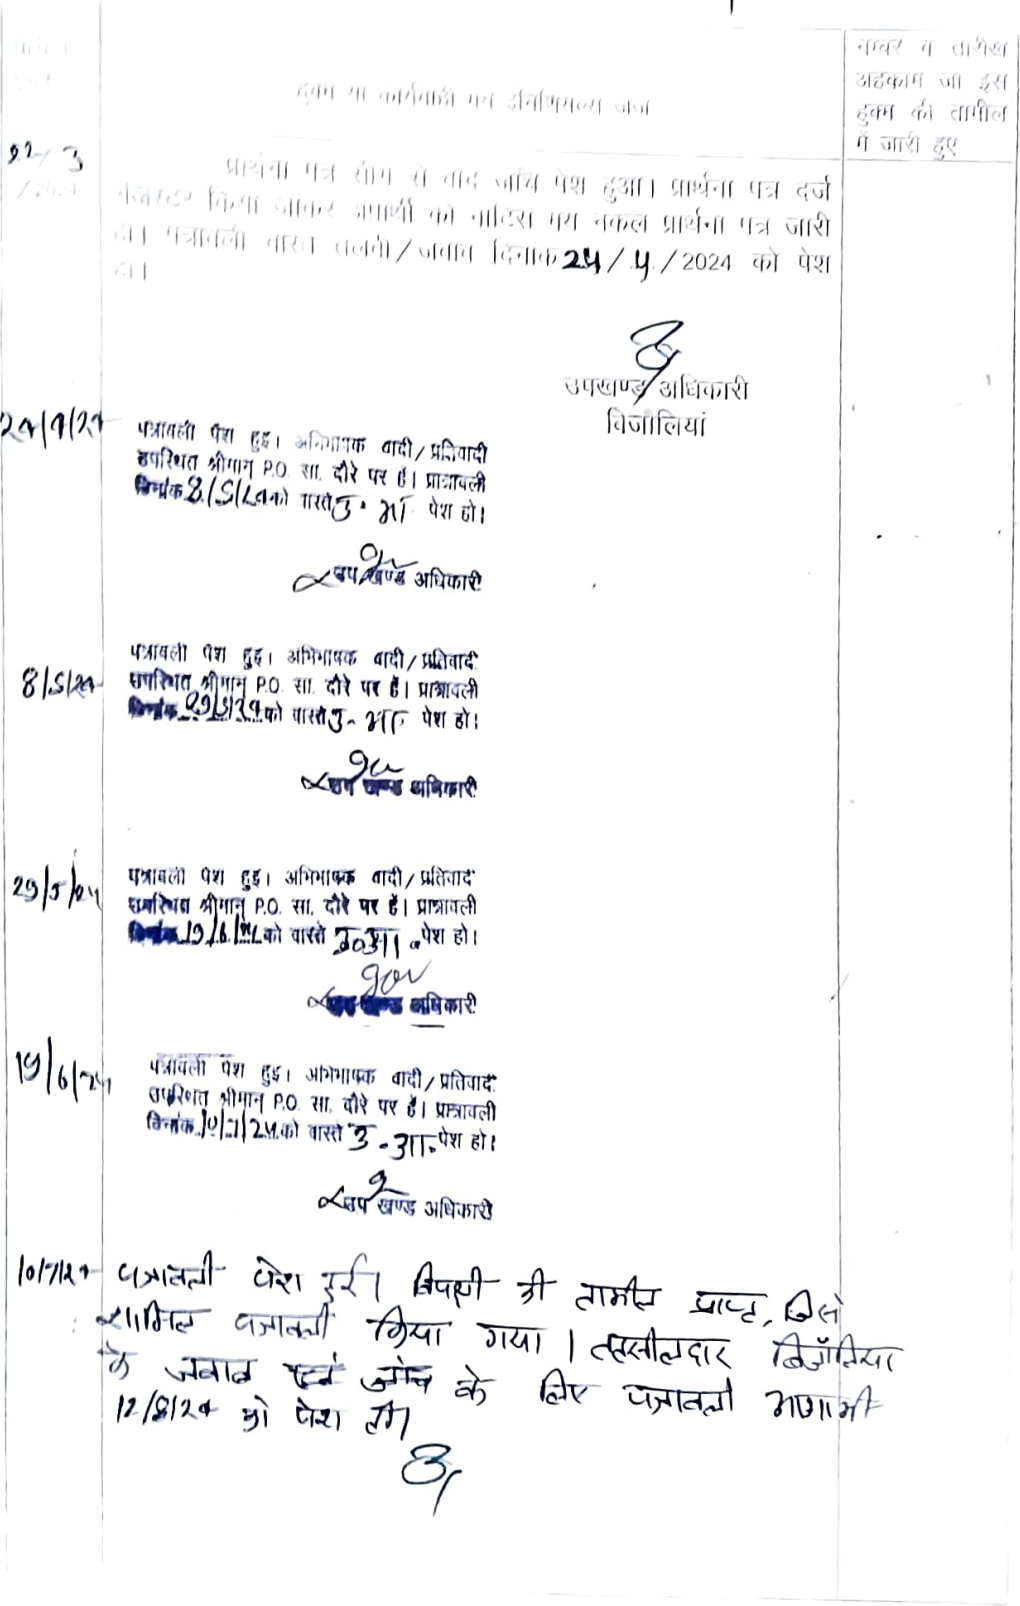 हुक्म या कार्यवाही मय इनिशियल्स जज
नम्बर व तारीख
अहकाम जो इस
हुक्म की तामील
में जारी हुए
22/3
प्रार्थना पत्र रीग से बाद जांच पेश हुआ। प्रार्थना पत्र दर्ज
रजिस्टर किया जाकर अप्रार्थी को नोटिस मय नकल प्रार्थना पत्र जारी
हो। पत्रावली वास्ते तलबी/जवाब दिनांक 24/4/2024 को पेश
हो।
उपखण्ड अधिकारी
बिजौलियां
24/4/24 पत्रावली पेश हुई। अभिभाषक वादी/प्रतिवादी
उपस्थित श्रीमान् P.O. सा. दौरे पर हैं। प्रात्रावली
दिनांक 8/5/24 को वास्ते उ.आ. पेश हो।
उप खण्ड अधिकारी
8/5/24 पत्रावली पेश हुई। अभिभाषक वादी/प्रतिवादी
उपस्थित श्रीमान् P.O. सा. दौरे पर हैं। प्रात्रावली
दिनांक 29/5/24 को वास्ते उ.आ. पेश हो।
उप खण्ड अधिकारी
29/5/24 पत्रावली पेश हुई। अभिभाषक वादी/प्रतिवादी
उपस्थित श्रीमान् P.O. सा. दौरे पर हैं। प्रात्रावली
दिनांक 19/6/24 को वास्ते उ०आ. पेश हो।
उप खण्ड अधिकारी
19/6/24 पत्रावली पेश हुई। अभिभाषक वादी/प्रतिवादी
उपस्थित श्रीमान् P.O. सा. दौरे पर हैं। प्रात्रावली
दिनांक 10/7/24 को वास्ते उ-आ. पेश हो।
उप खण्ड अधिकारी
10/7/24 पत्रावली पेश हुई। विपक्षी की तामील प्राप्त, जिसे
शामिल पत्रावली किया गया। तहसीलदार बिजौलिया
के जवाब एवं जांच के लिए पत्रावली आगामी
12/8/24 को पेश हो।